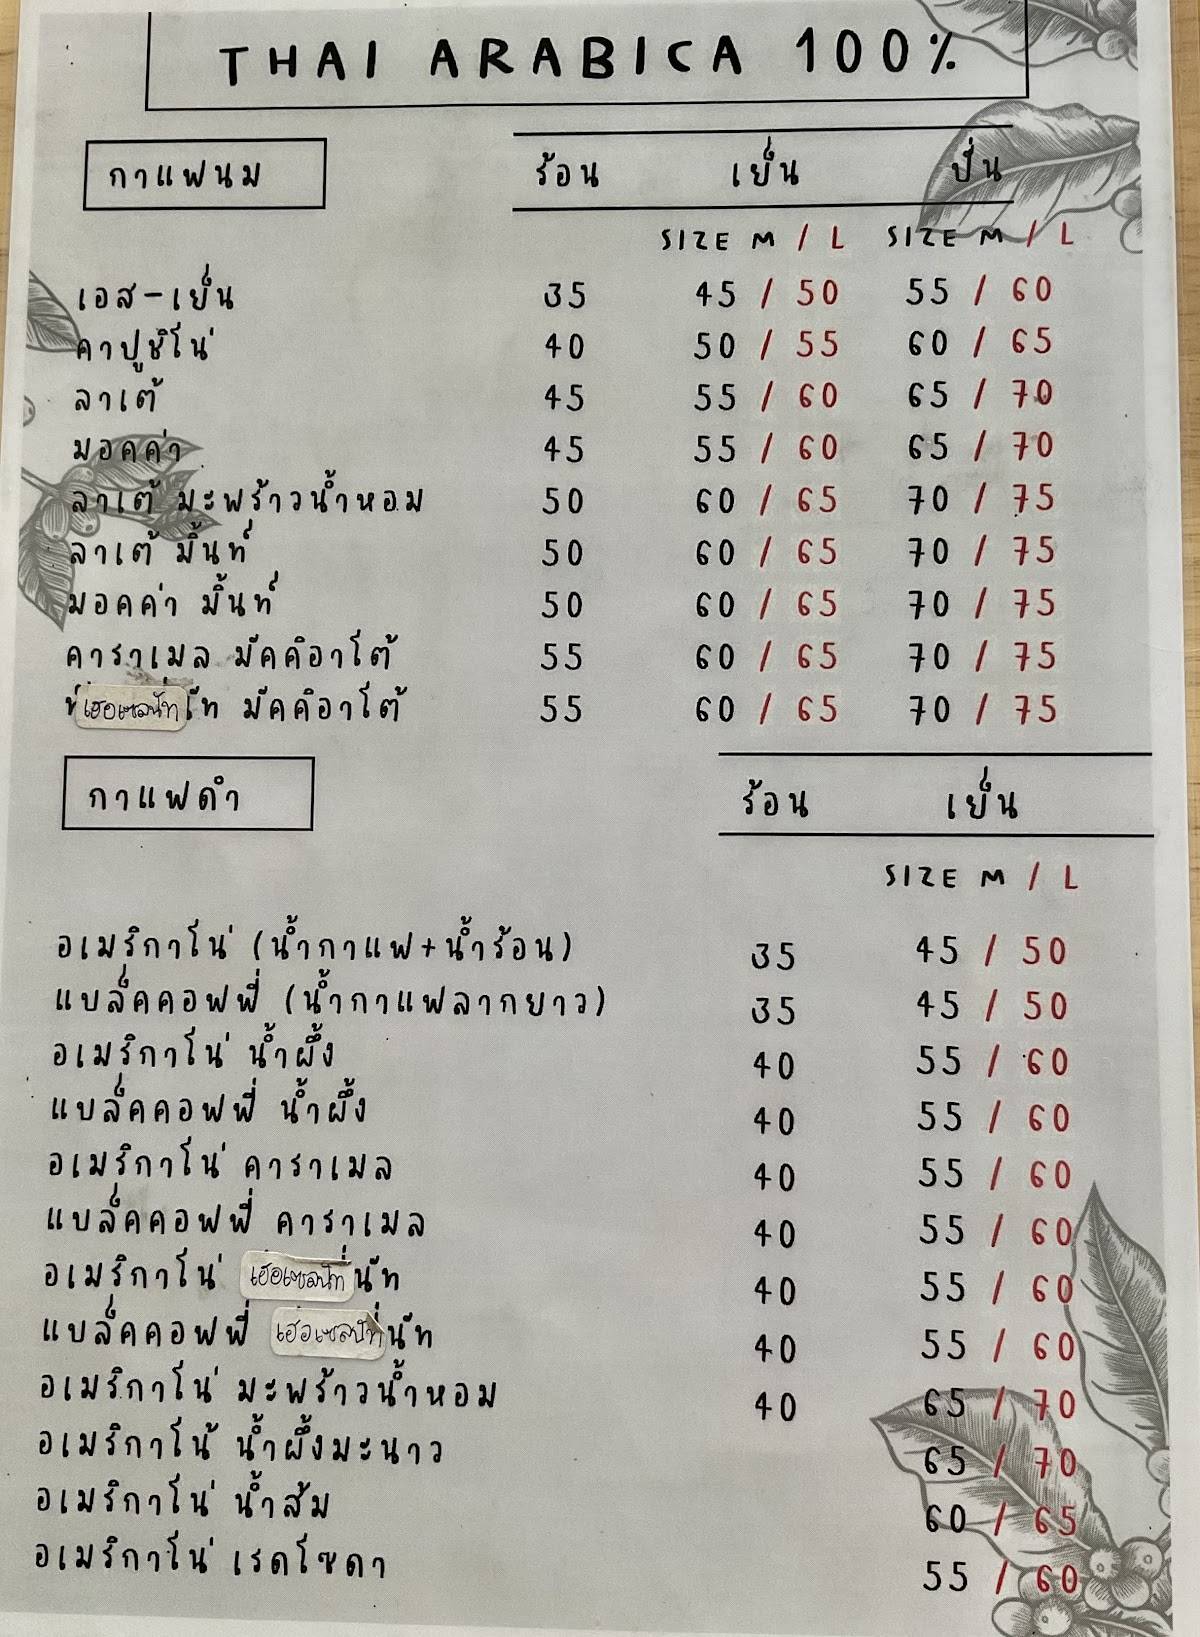 THAI ARABICA 100%
กาแฟนม ร้อน เย็น ปั่น
SIZE M / L SIZE M / L
เอส-เย็น 35 45 / 50 55 / 60
คาปูชิโน่ 40 50 / 55 60 / 65
ลาเต้ 45 55 / 60 65 / 70
มอคค่า 45 55 / 60 65 / 70
ลาเต้ มะพร้าวน้ำหอม 50 60 / 65 70 / 75
ลาเต้ มิ้นท์ 50 60 / 65 70 / 75
มอคค่า มิ้นท์ 50 60 / 65 70 / 75
คาราเมล มัคคิอาโต้ 55 60 / 65 70 / 75
เฮอเซลนัท มัคคิอาโต้ 55 60 / 65 70 / 75
กาแฟดำ ร้อน เย็น
SIZE M / L
อเมริกาโน่ (น้ำกาแฟ+น้ำร้อน) 35 45 / 50
แบล็คคอฟฟี่ (น้ำกาแฟลากยาว) 35 45 / 50
อเมริกาโน่ น้ำผึ้ง 40 55 / 60
แบล็คคอฟฟี่ น้ำผึ้ง 40 55 / 60
อเมริกาโน่ คาราเมล 40 55 / 60
แบล็คคอฟฟี่ คาราเมล 40 55 / 60
อเมริกาโน่ เฮอเซลนัท นัท 40 55 / 60
แบล็คคอฟฟี่ เฮอเซลนัท นัท 40 55 / 60
อเมริกาโน่ มะพร้าวน้ำหอม 40 65 / 70
อเมริกาโน้ น้ำผึ้งมะนาว 65 / 70
อเมริกาโน่ น้ำส้ม 60 / 65
อเมริกาโน่ เรดโซดา 55 / 60